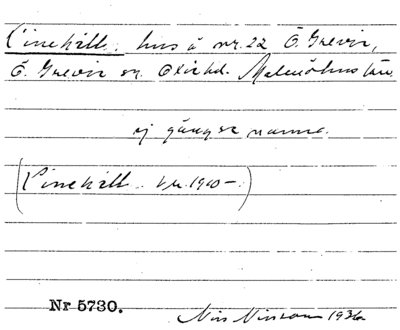 Pinehill: hus å nr. 22 Ö. Grevie,
Ö. Grevie sn. Oxie hd. Malmöhus län.
ej gängse namn.
(Pinehill.. 1910-)
Nr 5730.
Nils Nilsson 1936